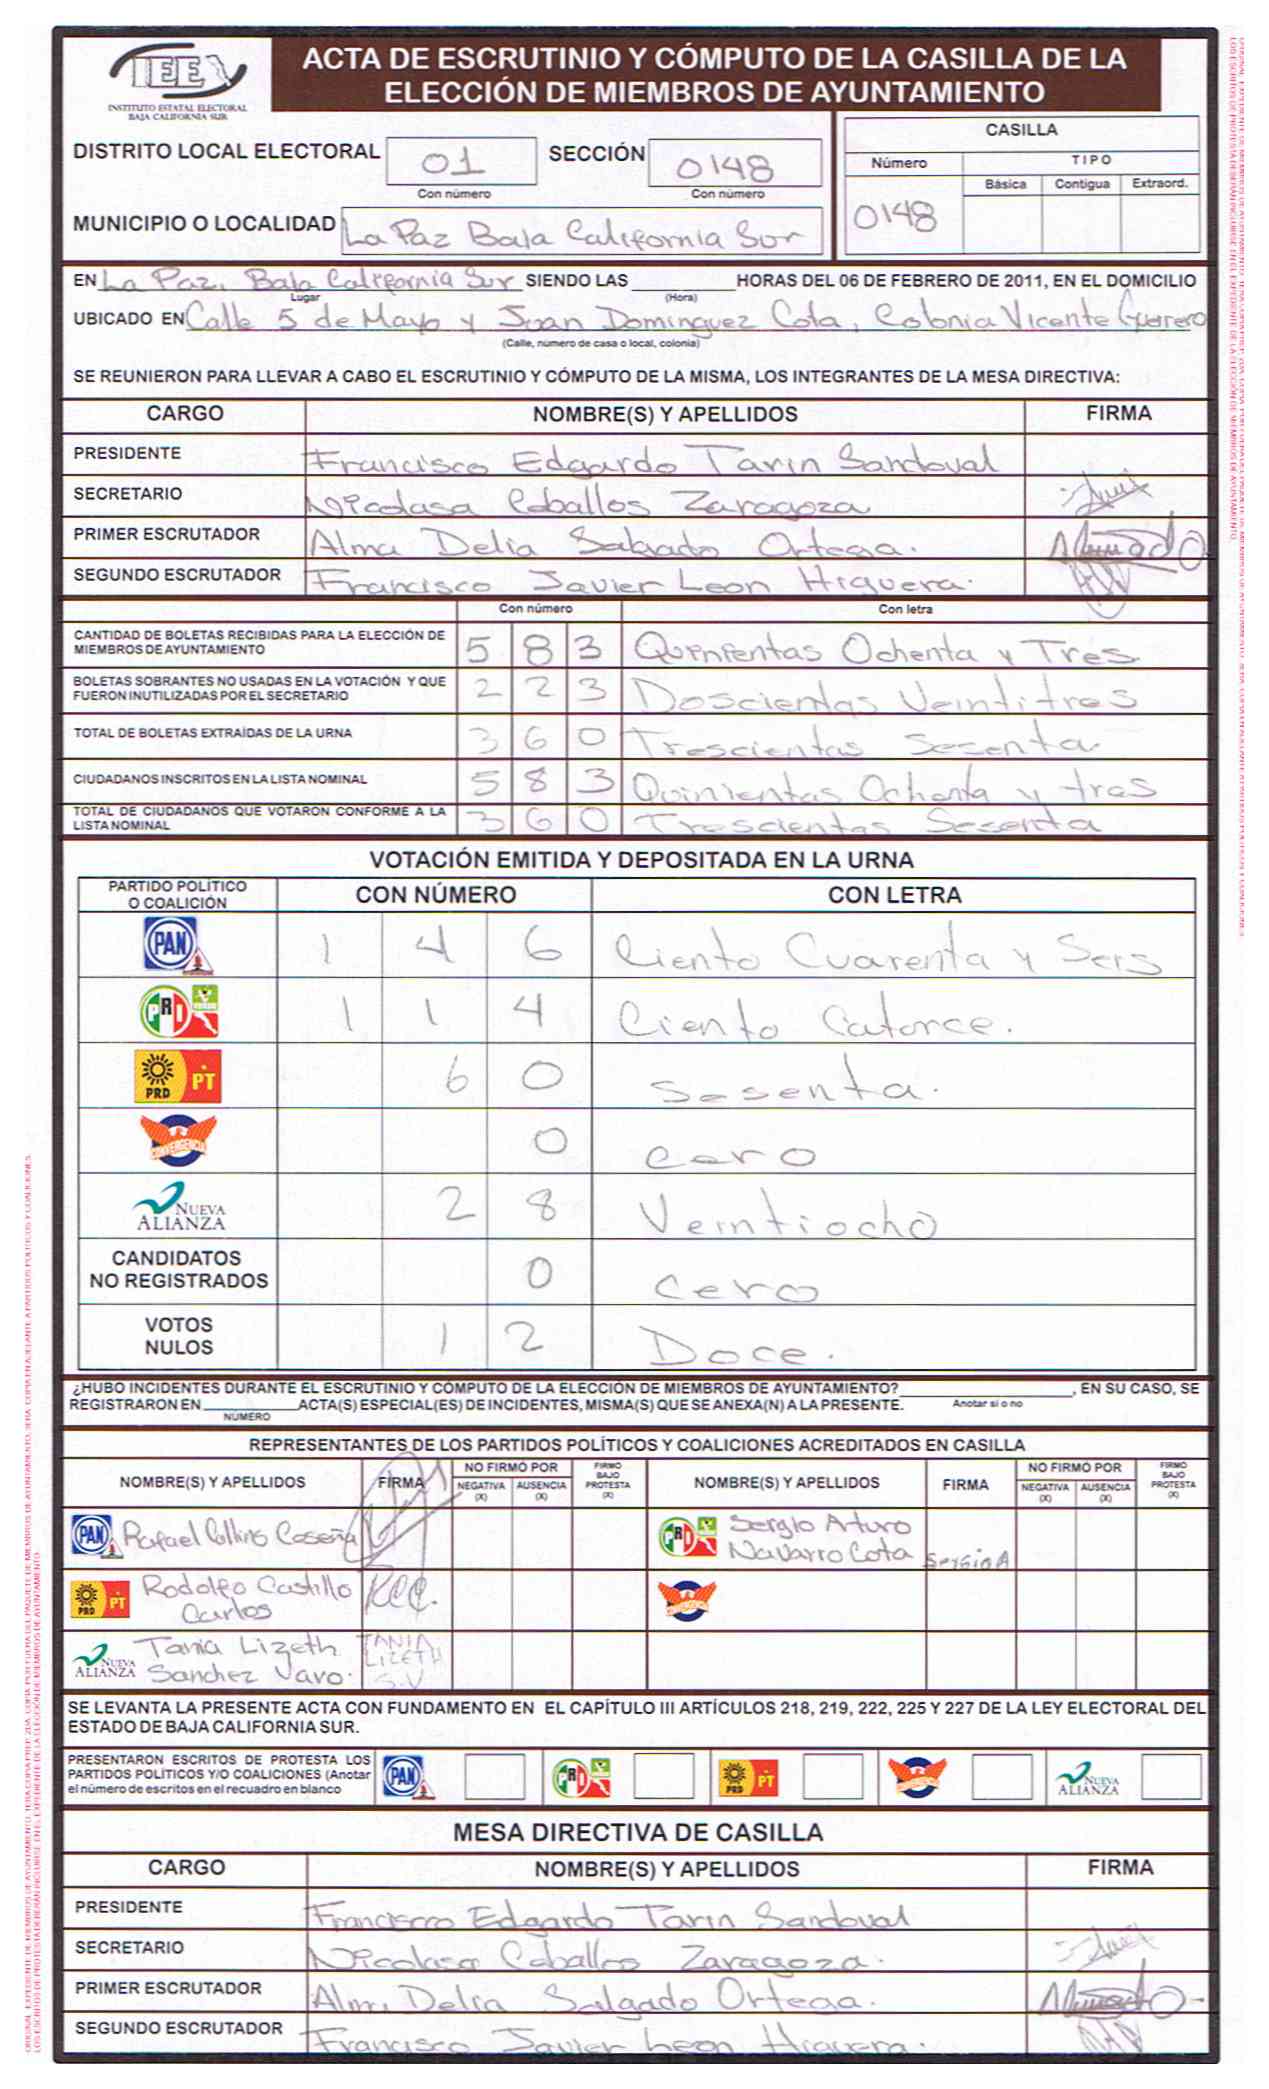 IEE
INSTITUTO ESTATAL ELECTORAL
BAJA CALIFORNIA SUR
ACTA DE ESCRUTINIO Y CÓMPUTO DE LA CASILLA DE LA
ELECCIÓN DE MIEMBROS DE AYUNTAMIENTO
DISTRITO LOCAL ELECTORAL 01 SECCIÓN 0148
Con número Con número
MUNICIPIO O LOCALIDAD La Paz Baja California Sur
CASILLA
Número TIPO
Básica Contigua Extraord.
0148
EN La Paz, Baja California Sur SIENDO LAS HORAS DEL 06 DE FEBRERO DE 2011, EN EL DOMICILIO
Lugar (Hora)
UBICADO EN Calle 5 de Mayo y Juan Dominguez Cota, Colonia Vicente Guerrero
(Calle, número de casa o local, colonia)
SE REUNIERON PARA LLEVAR A CABO EL ESCRUTINIO Y CÓMPUTO DE LA MISMA, LOS INTEGRANTES DE LA MESA DIRECTIVA:
CARGO NOMBRE(S) Y APELLIDOS FIRMA
PRESIDENTE Francisco Edgardo Tarin Sandoval
SECRETARIO Nicolasa Ceballos Zaragoza
PRIMER ESCRUTADOR Alma Delia Salgado Ortega.
SEGUNDO ESCRUTADOR Francisco Javier Leon Higuera.
Con número Con letra
CANTIDAD DE BOLETAS RECIBIDAS PARA LA ELECCIÓN DE
MIEMBROS DE AYUNTAMIENTO 5 8 3 Quinientas Ochenta y Tres
BOLETAS SOBRANTES NO USADAS EN LA VOTACIÓN Y QUE
FUERON INUTILIZADAS POR EL SECRETARIO 2 2 3 Doscientas Veintitres
TOTAL DE BOLETAS EXTRAÍDAS DE LA URNA 3 6 0 Trescientas Sesenta
CIUDADANOS INSCRITOS EN LA LISTA NOMINAL 5 8 3 Quinientas Ochenta y tres
TOTAL DE CIUDADANOS QUE VOTARON CONFORME A LA
LISTA NOMINAL 3 6 0 Trescientas Sesenta
VOTACIÓN EMITIDA Y DEPOSITADA EN LA URNA
PARTIDO POLÍTICO
O COALICIÓN CON NÚMERO CON LETRA
PAN 1 4 6 Ciento Cuarenta y Seis
PRI VERDE 1 1 4 Ciento Catorce.
PRD PT 6 0 Sesenta.
CONVERGENCIA 0 Cero
NUEVA ALIANZA 2 8 Veintiocho
CANDIDATOS
NO REGISTRADOS 0 Cero
VOTOS
NULOS 1 2 Doce.
¿HUBO INCIDENTES DURANTE EL ESCRUTINIO Y CÓMPUTO DE LA ELECCIÓN DE MIEMBROS DE AYUNTAMIENTO? , EN SU CASO, SE
REGISTRARON EN ACTA(S) ESPECIAL(ES) DE INCIDENTES, MISMA(S) QUE SE ANEXA(N) A LA PRESENTE. Anotar si o no
NÚMERO
REPRESENTANTES DE LOS PARTIDOS POLÍTICOS Y COALICIONES ACREDITADOS EN CASILLA
NOMBRE(S) Y APELLIDOS FIRMA NO FIRMÓ POR NEGATIVA (X) AUSENCIA (X) FIRMO BAJO PROTESTA (X) NOMBRE(S) Y APELLIDOS FIRMA NO FIRMÓ POR NEGATIVA (X) AUSENCIA (X) FIRMO BAJO PROTESTA (X)
PAN Rafael Collins Coseña PRI Sergio Arturo
Navarro Cota Sergio A
PRD PT Rodolfo Castillo
Carlos RCC.
NUEVA ALIANZA Tania Lizeth
Sanchez Varo. TANIA
LIZETH
S.V
SE LEVANTA LA PRESENTE ACTA CON FUNDAMENTO EN EL CAPÍTULO III ARTÍCULOS 218, 219, 222, 225 Y 227 DE LA LEY ELECTORAL DEL
ESTADO DE BAJA CALIFORNIA SUR.
PRESENTARON ESCRITOS DE PROTESTA LOS
PARTIDOS POLÍTICOS Y/O COALICIONES (Anotar
el número de escritos en el recuadro en blanco
PAN PRI PRD PT CONVERGENCIA NUEVA ALIANZA
MESA DIRECTIVA DE CASILLA
CARGO NOMBRE(S) Y APELLIDOS FIRMA
PRESIDENTE Francisco Edgardo Tarin Sandoval
SECRETARIO Nicolasa Ceballos Zaragoza.
PRIMER ESCRUTADOR Alma Delia Salgado Ortega.
SEGUNDO ESCRUTADOR Francisco Javier Leon Higuera.